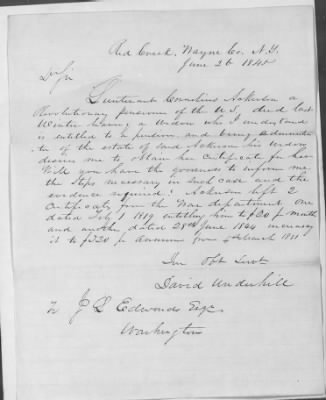 Red Creek, Wayne Co. N.Y.
June 26 1845
Dr Sir
Lieutenant Cornelius Ackerson a
Revolutionary pensioner of the U.S. died last
Winter leaving a Widow who I understand
is entitled to a pension, and being administra
tor of the estate of said Ackerson his widow
desires me to obtain her Certificate for her
Will you have the goodness to inform me
the steps necessary in such case and the
evidence required? Ackerson left 2
Certificates from the War department, one
dated July 1 1819 entitling him to $20 pr month
and another, dated 28th June 1844 increasing
it to $320 pr annum from 4 March 1831
Your Obt Servt
David Underhill
To J L Edwards Esqr
Washington